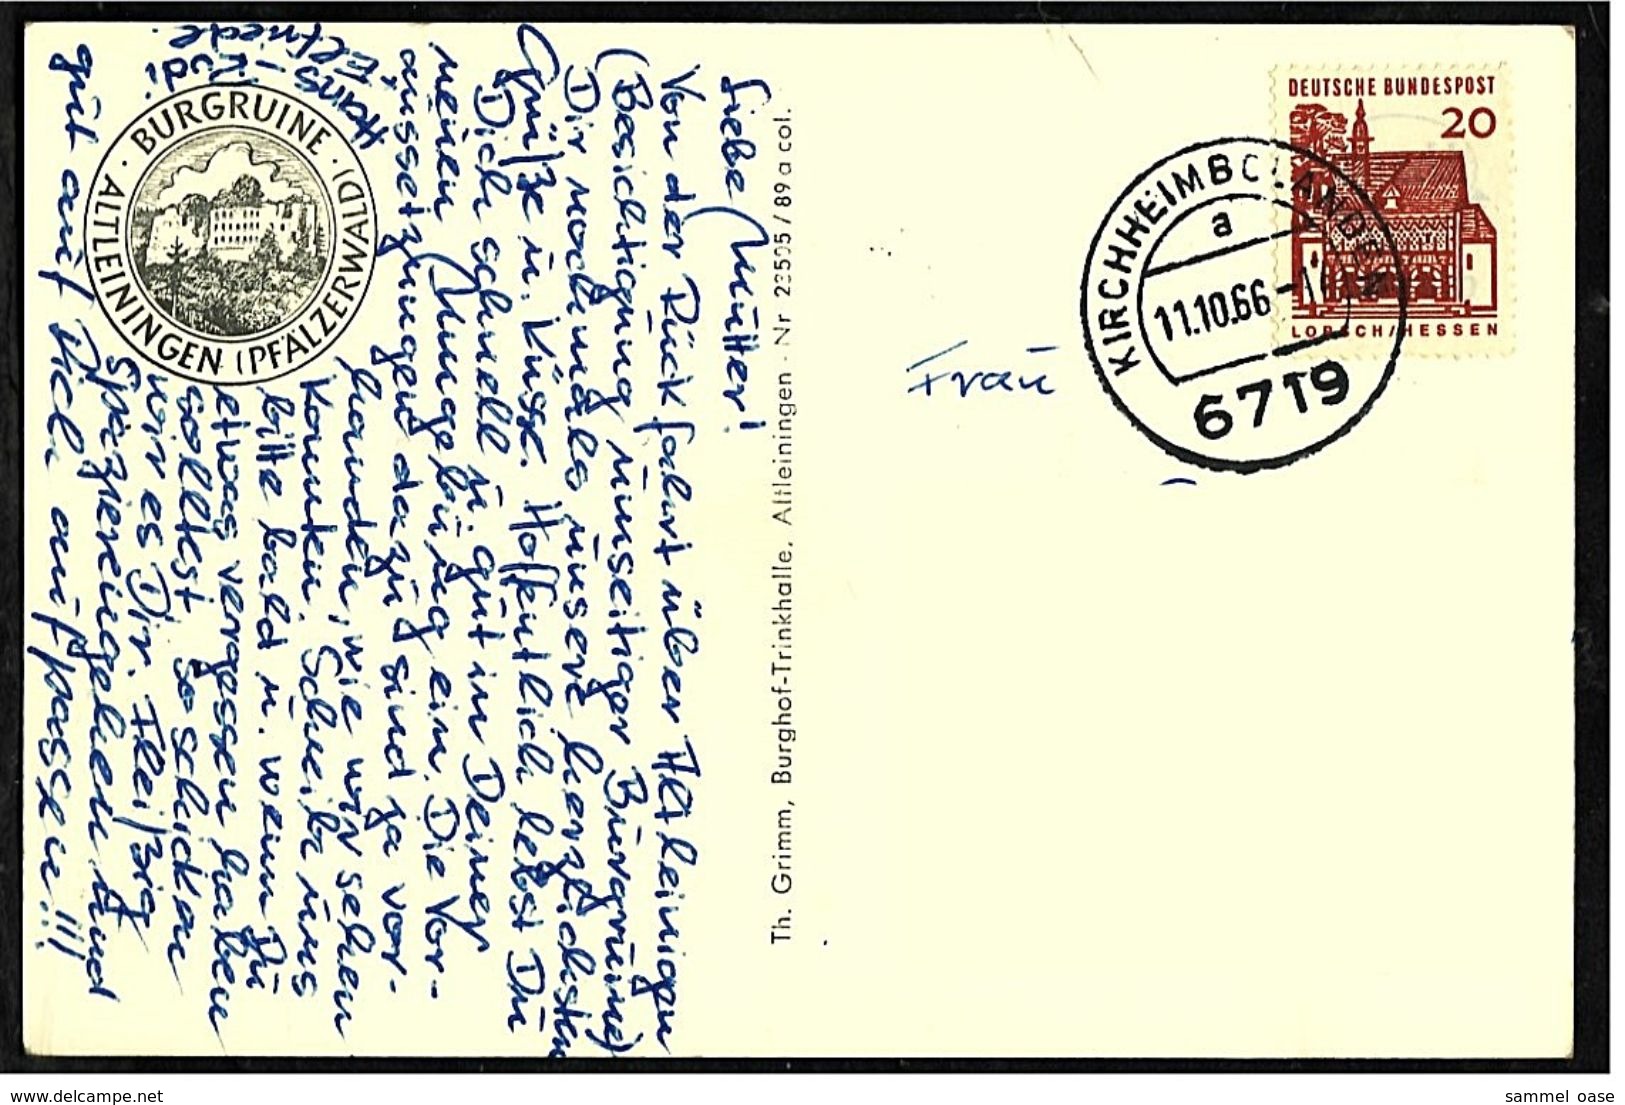 Liebe Mutter!
Von der Rückfahrt über Altleiningen
(Besichtigung umseitiger Burgruine)
Dir nochmals unsere herzlichsten
Grüße u. Küsse. Hoffentlich lebst Du
Dich schnell u. gut in Deiner
neuen Umgebung ein. Die Vor-
aussetzungen dazu sind ja vor-
handen, wie wir sehen
konnten. Schreibe uns
bitte bald u. wenn Du
etwas vergessen haben
solltest so schicken
wir es Dir. Fleißig
Spazierengehen und
gut auf Dich aufpassen!!!
Hans
+ Elfriede
BURGRUINE · ALTLEININGEN (PFÄLZERWALD) ·
Th. Grimm, Burghof-Trinkhalle, Altleiningen - Nr 23505 / 89 a col.
Frau
KIRCHHEIMBOLANDEN
a
11.10.66
6719
DEUTSCHE BUNDESPOST
20
LORSCH/HESSEN
www.delcampe.net
sammel_oase